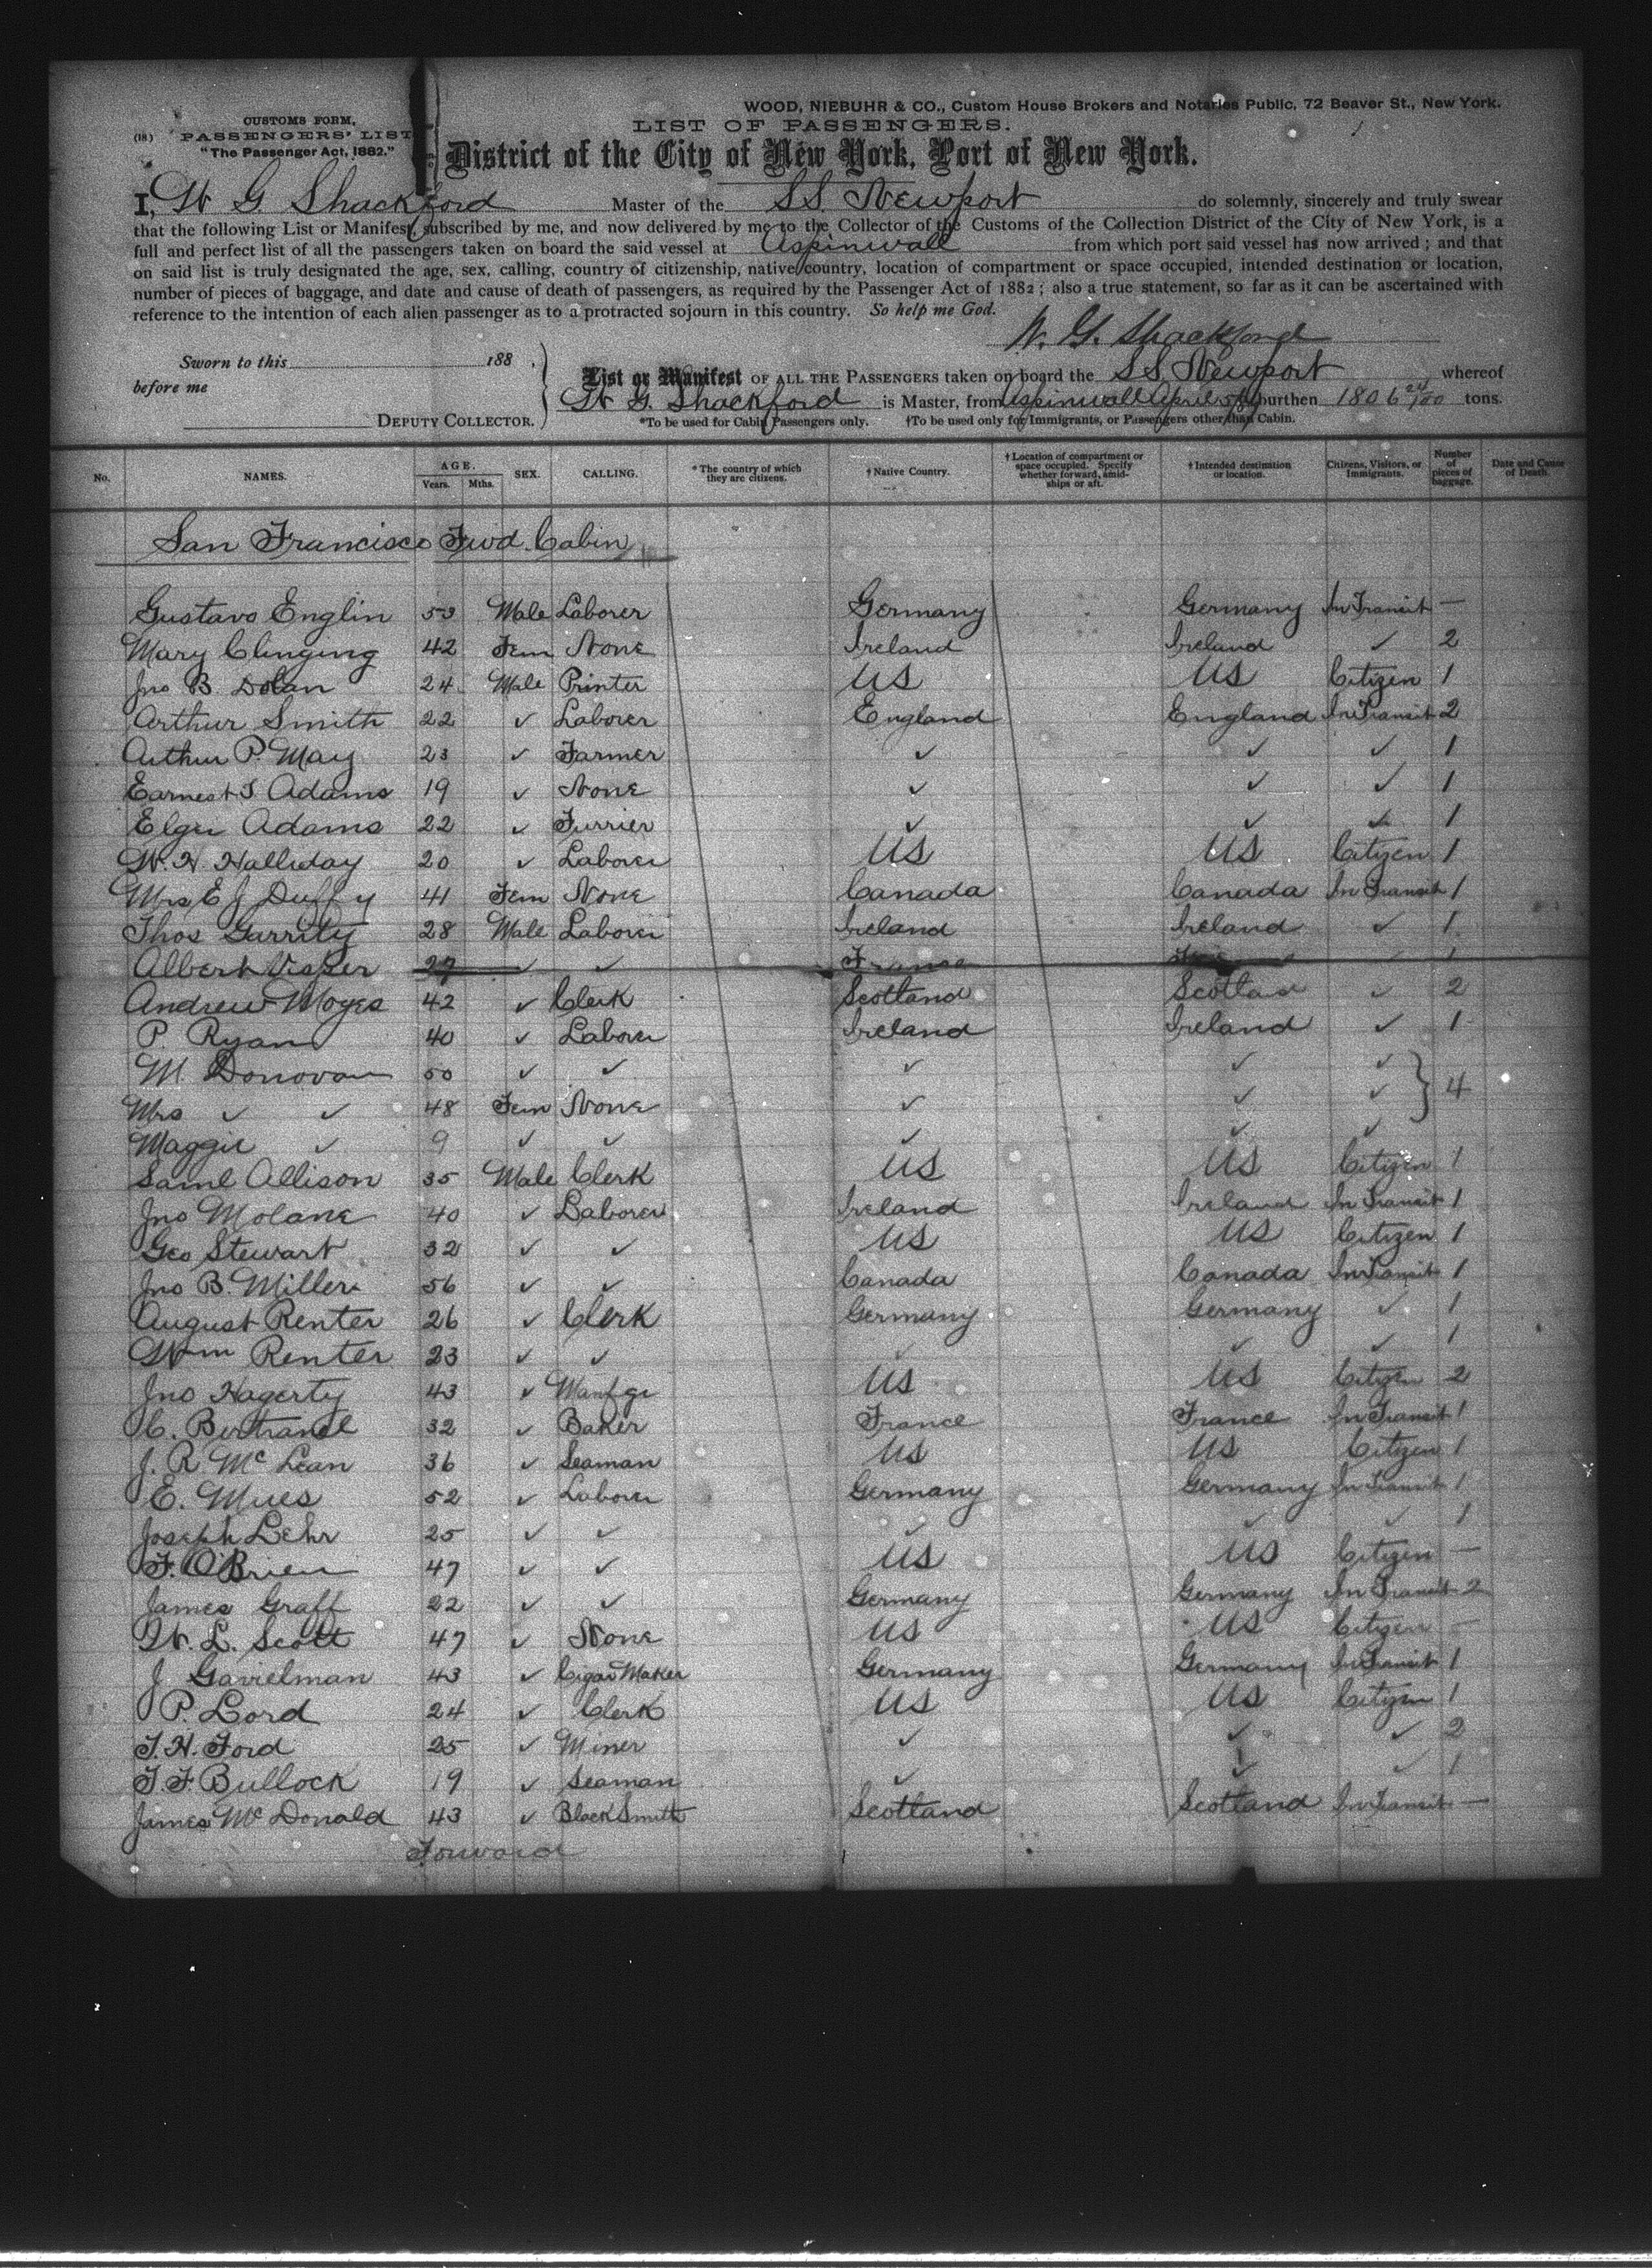 WOOD, NIEBUHR & CO., Custom House Brokers and Notaries Public, 72 Beaver St., New York.
CUSTOMS FORM,
LIST OF PASSENGERS.
(18) PASSENGERS' LIST
"The Passenger Act, 1882."
District of the City of New York, Port of New York.
I, W G. Shackford Master of the SS. Newport do solemnly, sincerely and truly swear
that the following List or Manifest, subscribed by me, and now delivered by me to the Collector of the Customs of the Collection District of the City of New York, is a
full and perfect list of all the passengers taken on board the said vessel at Aspinwall from which port said vessel has now arrived; and that
on said list is truly designated the age, sex, calling, country of citizenship, native country, location of compartment or space occupied, intended destination or location,
number of pieces of baggage, and date and cause of death of passengers, as required by the Passenger Act of 1882; also a true statement, so far as it can be ascertained with
reference to the intention of each alien passenger as to a protracted sojourn in this country. So help me God.
W. G. Shackford
Sworn to this 188 .
before me
DEPUTY COLLECTOR.
List or Manifest OF ALL THE PASSENGERS taken on board the SS. Newport whereof
W G. Shackford is Master, from Aspinwall April burthen 1806 24/100 tons.
*To be used for Cabin Passengers only. †To be used only for Immigrants, or Passengers other than Cabin.
No. NAMES. AGE. Years. Mths. SEX. CALLING. * The country of which they are citizens. † Native Country. † Location of compartment or space occupied. Specify whether forward, amidships or aft. † Intended destination or location. Citizens, Visitors, or Immigrants. Number of pieces of baggage. Date and Cause of Death.
San Francisco Fwd. Cabin
Gustavo Englin 53 Male Laborer Germany Germany In Transit —
Mary Clinging 42 Fem None Ireland Ireland ✓ 2
Jno B. Dolan 24 Male Printer US US Citizen 1
Arthur Smith 22 ✓ Laborer England England In Transit 2
Arthur P. May 23 ✓ Farmer ✓ ✓ ✓ 1
Earnest S Adams 19 ✓ None ✓ ✓ ✓ 1
Elger Adams 22 ✓ Furrier ✓ ✓ ✓ 1
W. H. Halliday 20 ✓ Laborer US US Citizen 1
Mrs E J Duffy 41 Fem None Canada Canada In Transit 1
Thos Garrity 28 Male Laborer Ireland Ireland ✓ 1
Albert 27 ✓ ✓ France ✓ 1
Andrew Moyes 42 ✓ Clerk Scotland Scotland ✓ 2
P. Ryan 40 ✓ Laborer Ireland Ireland ✓ 1
M. Donovan 50 ✓ ✓ ✓ ✓ ✓
Mrs ✓ ✓ 48 Fem None ✓ ✓ ✓ } 4
Maggie ✓ 9 ✓ ✓ ✓ ✓ ✓
Saml Allison 35 Male Clerk US US Citizen 1
Jno Molane 40 ✓ Laborer Ireland Ireland In Transit 1
Geo Stewart 32 ✓ ✓ US US Citizen 1
Jno B. Miller 56 ✓ ✓ Canada Canada In Transit 1
August Renter 26 ✓ Clerk Germany Germany ✓ 1
Wm Renter 23 ✓ ✓ ✓ ✓ ✓ 1
Jno Hagerty 43 ✓ Manfgr US US Citizen 2
C. Bertrand 32 ✓ Baker France France In Transit 1
J. R. Mc Lean 36 ✓ Seaman US US Citizen 1
E. Mues 52 ✓ Laborer Germany Germany In Transit 1
Joseph Lehr 25 ✓ ✓ ✓ ✓ ✓ 1
F. O'Brien 47 ✓ ✓ US US Citizen —
James Graff 22 ✓ ✓ Germany Germany In Transit 2
W. L. Scott 47 ✓ None US US Citizen —
J Gavielman 43 ✓ Cigar Maker Germany Germany In Transit 1
P. Lord 24 ✓ Clerk US US Citizen 1
T. H. Ford 25 ✓ Miner ✓ ✓ ✓ 2
T. F. Bullock 19 ✓ Seaman ✓ ✓ ✓ 1
James Mc Donald 43 ✓ BlackSmith Scotland Scotland In Transit —
Forward